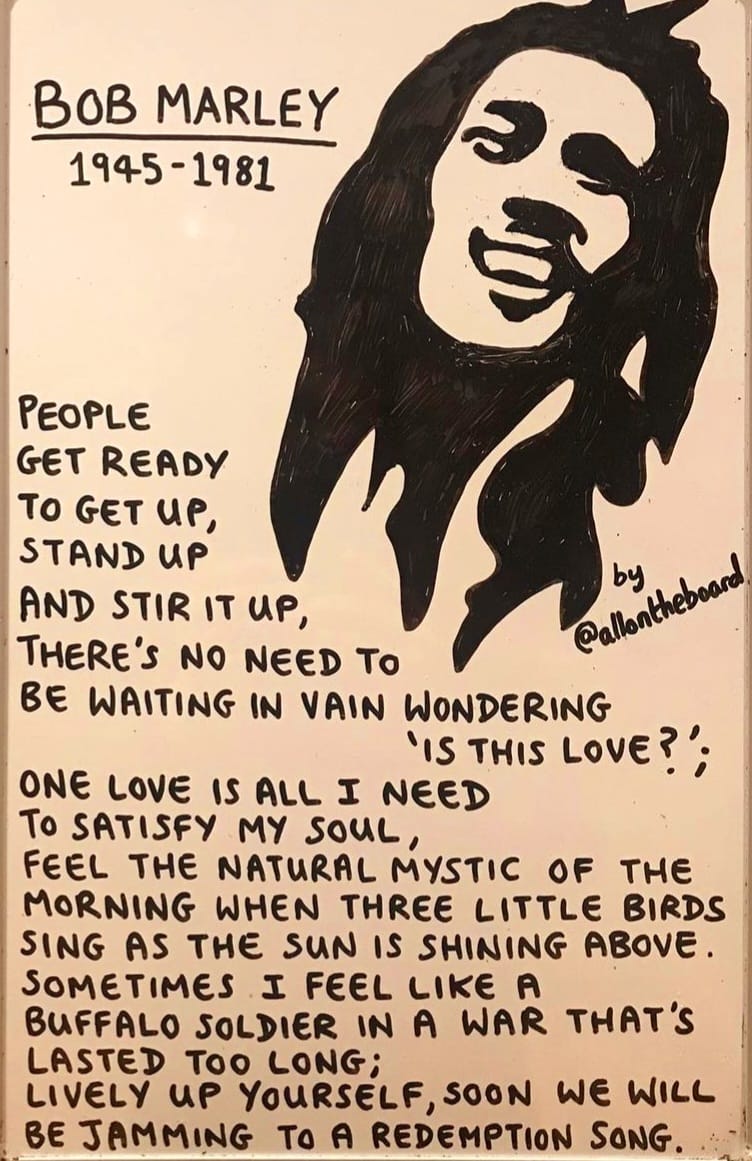 BOB MARLEY
1945-1981
PEOPLE
GET READY
TO GET UP,
STAND UP
AND STIR IT UP,
THERE'S NO NEED TO
BE WAITING IN VAIN WONDERING
'IS THIS LOVE?';
ONE LOVE IS ALL I NEED
TO SATISFY MY SOUL,
FEEL THE NATURAL MYSTIC OF THE
MORNING WHEN THREE LITTLE BIRDS
SING AS THE SUN IS SHINING ABOVE.
SOMETIMES I FEEL LIKE A
BUFFALO SOLDIER IN A WAR THAT'S
LASTED TOO LONG;
LIVELY UP YOURSELF, SOON WE WILL
BE JAMMING TO A REDEMPTION SONG.
by
@allontheboard